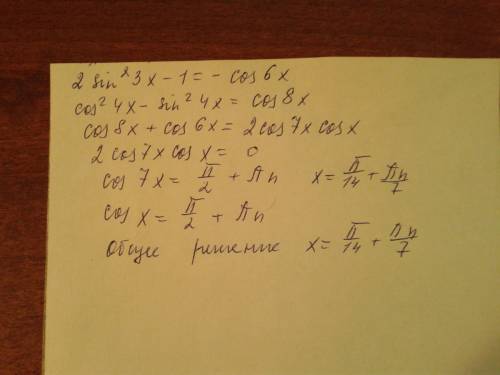 2 sin² 3x - 1 = - cos 6x
cos² 4x - sin² 4x = cos 8x
cos 8x + cos 6x = 2 cos 7x cos x
2 cos 7x cos x = 0
cos 7x = π/2 + πn x = π/14 + πn/7
cos x = π/2 + πn
Общее решение x = π/14 + πn/7